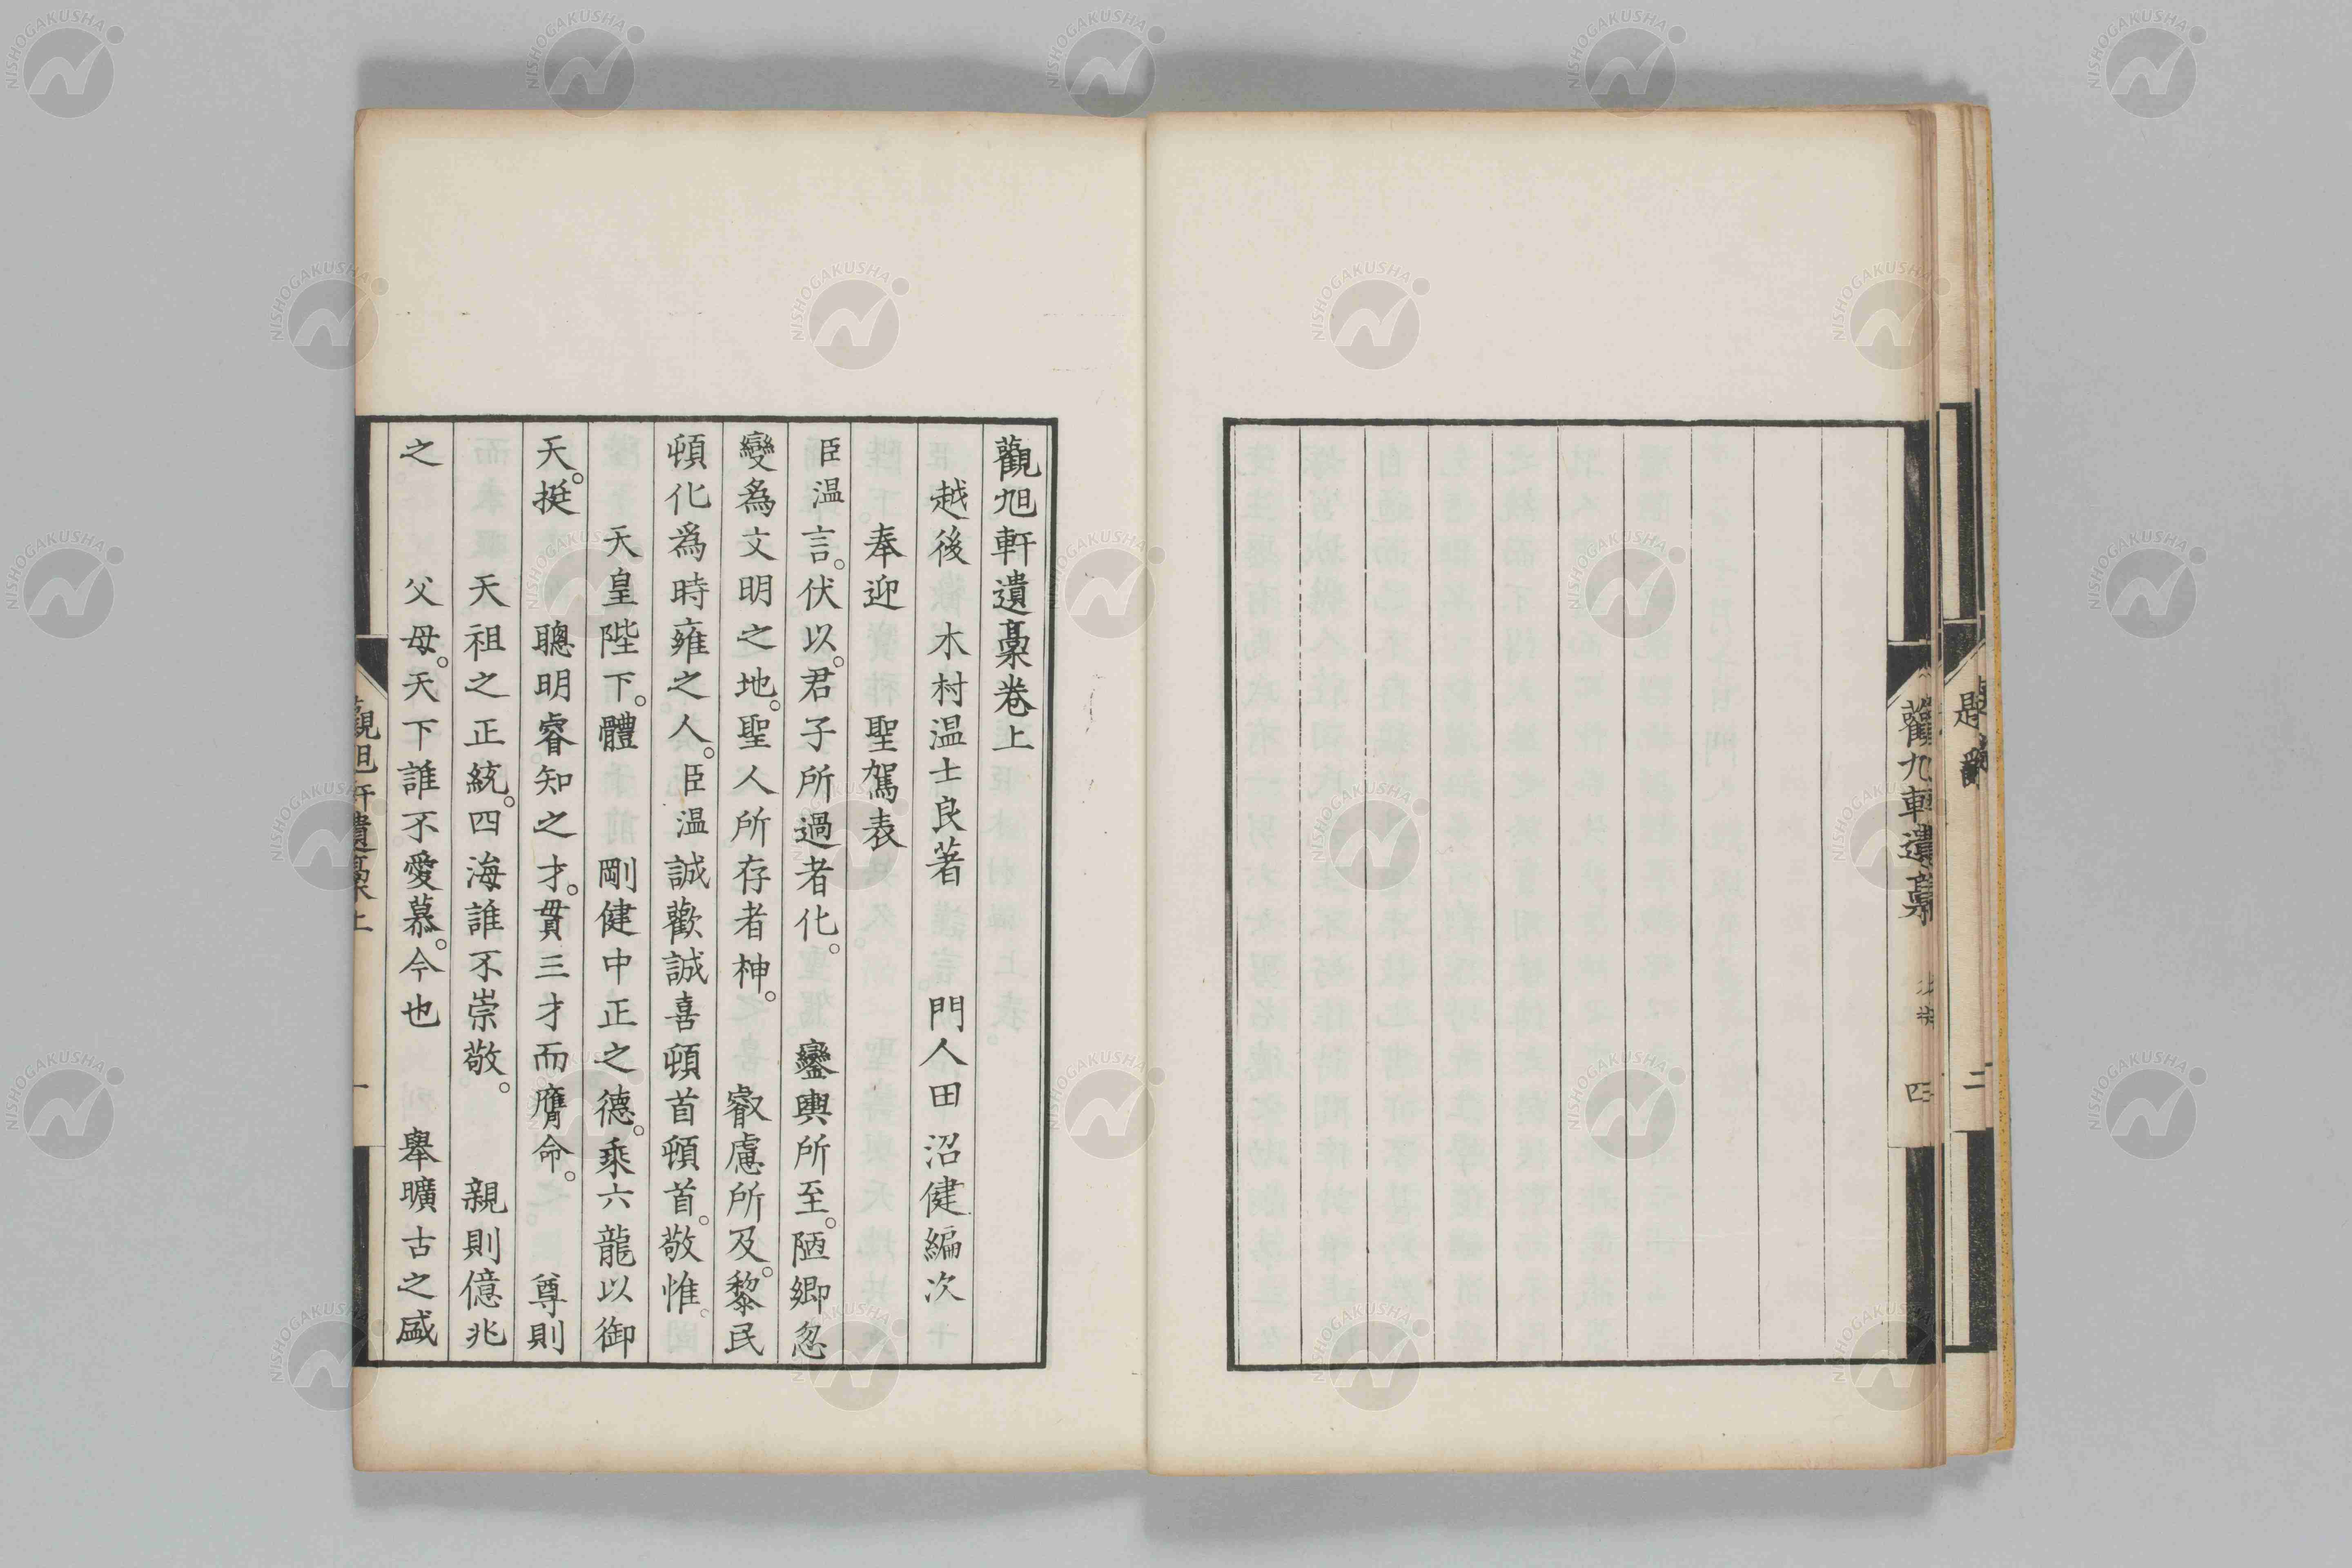 觀旭軒遺稾卷上
越後 木村温士良著 門人田沼健編次
奉迎 聖駕表
臣温言。伏以。君子所過者化。 鑾輿所至。陋鄉忽
變爲文明之地。聖人所存者神。 睿慮所及。黎民
頓化爲時雍之人。臣温誠歡誠喜頓首頓首。敬惟。
天皇陛下。體 剛健中正之德。乘六龍以御
天。挺 聰明睿知之才。貫三才而膺命。 尊則
天祖之正統。四海誰不崇敬。 親則億兆
之 父母。天下誰不愛慕。今也 舉曠古之盛
觀旭軒遺稾上
一
四
二
NISHOGAKUSHA